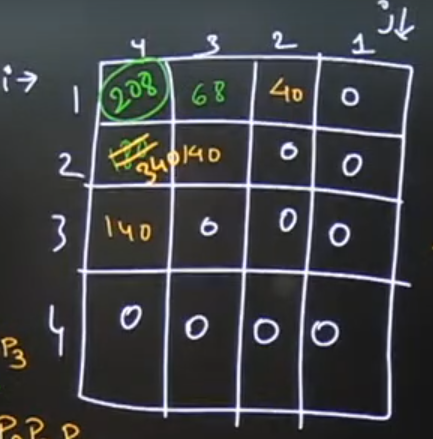 j↓
i→ 4 3 2 1
1 208 68 40 0
2 340 140 0 0
3 140 0 0 0
4 0 0 0 0
P3